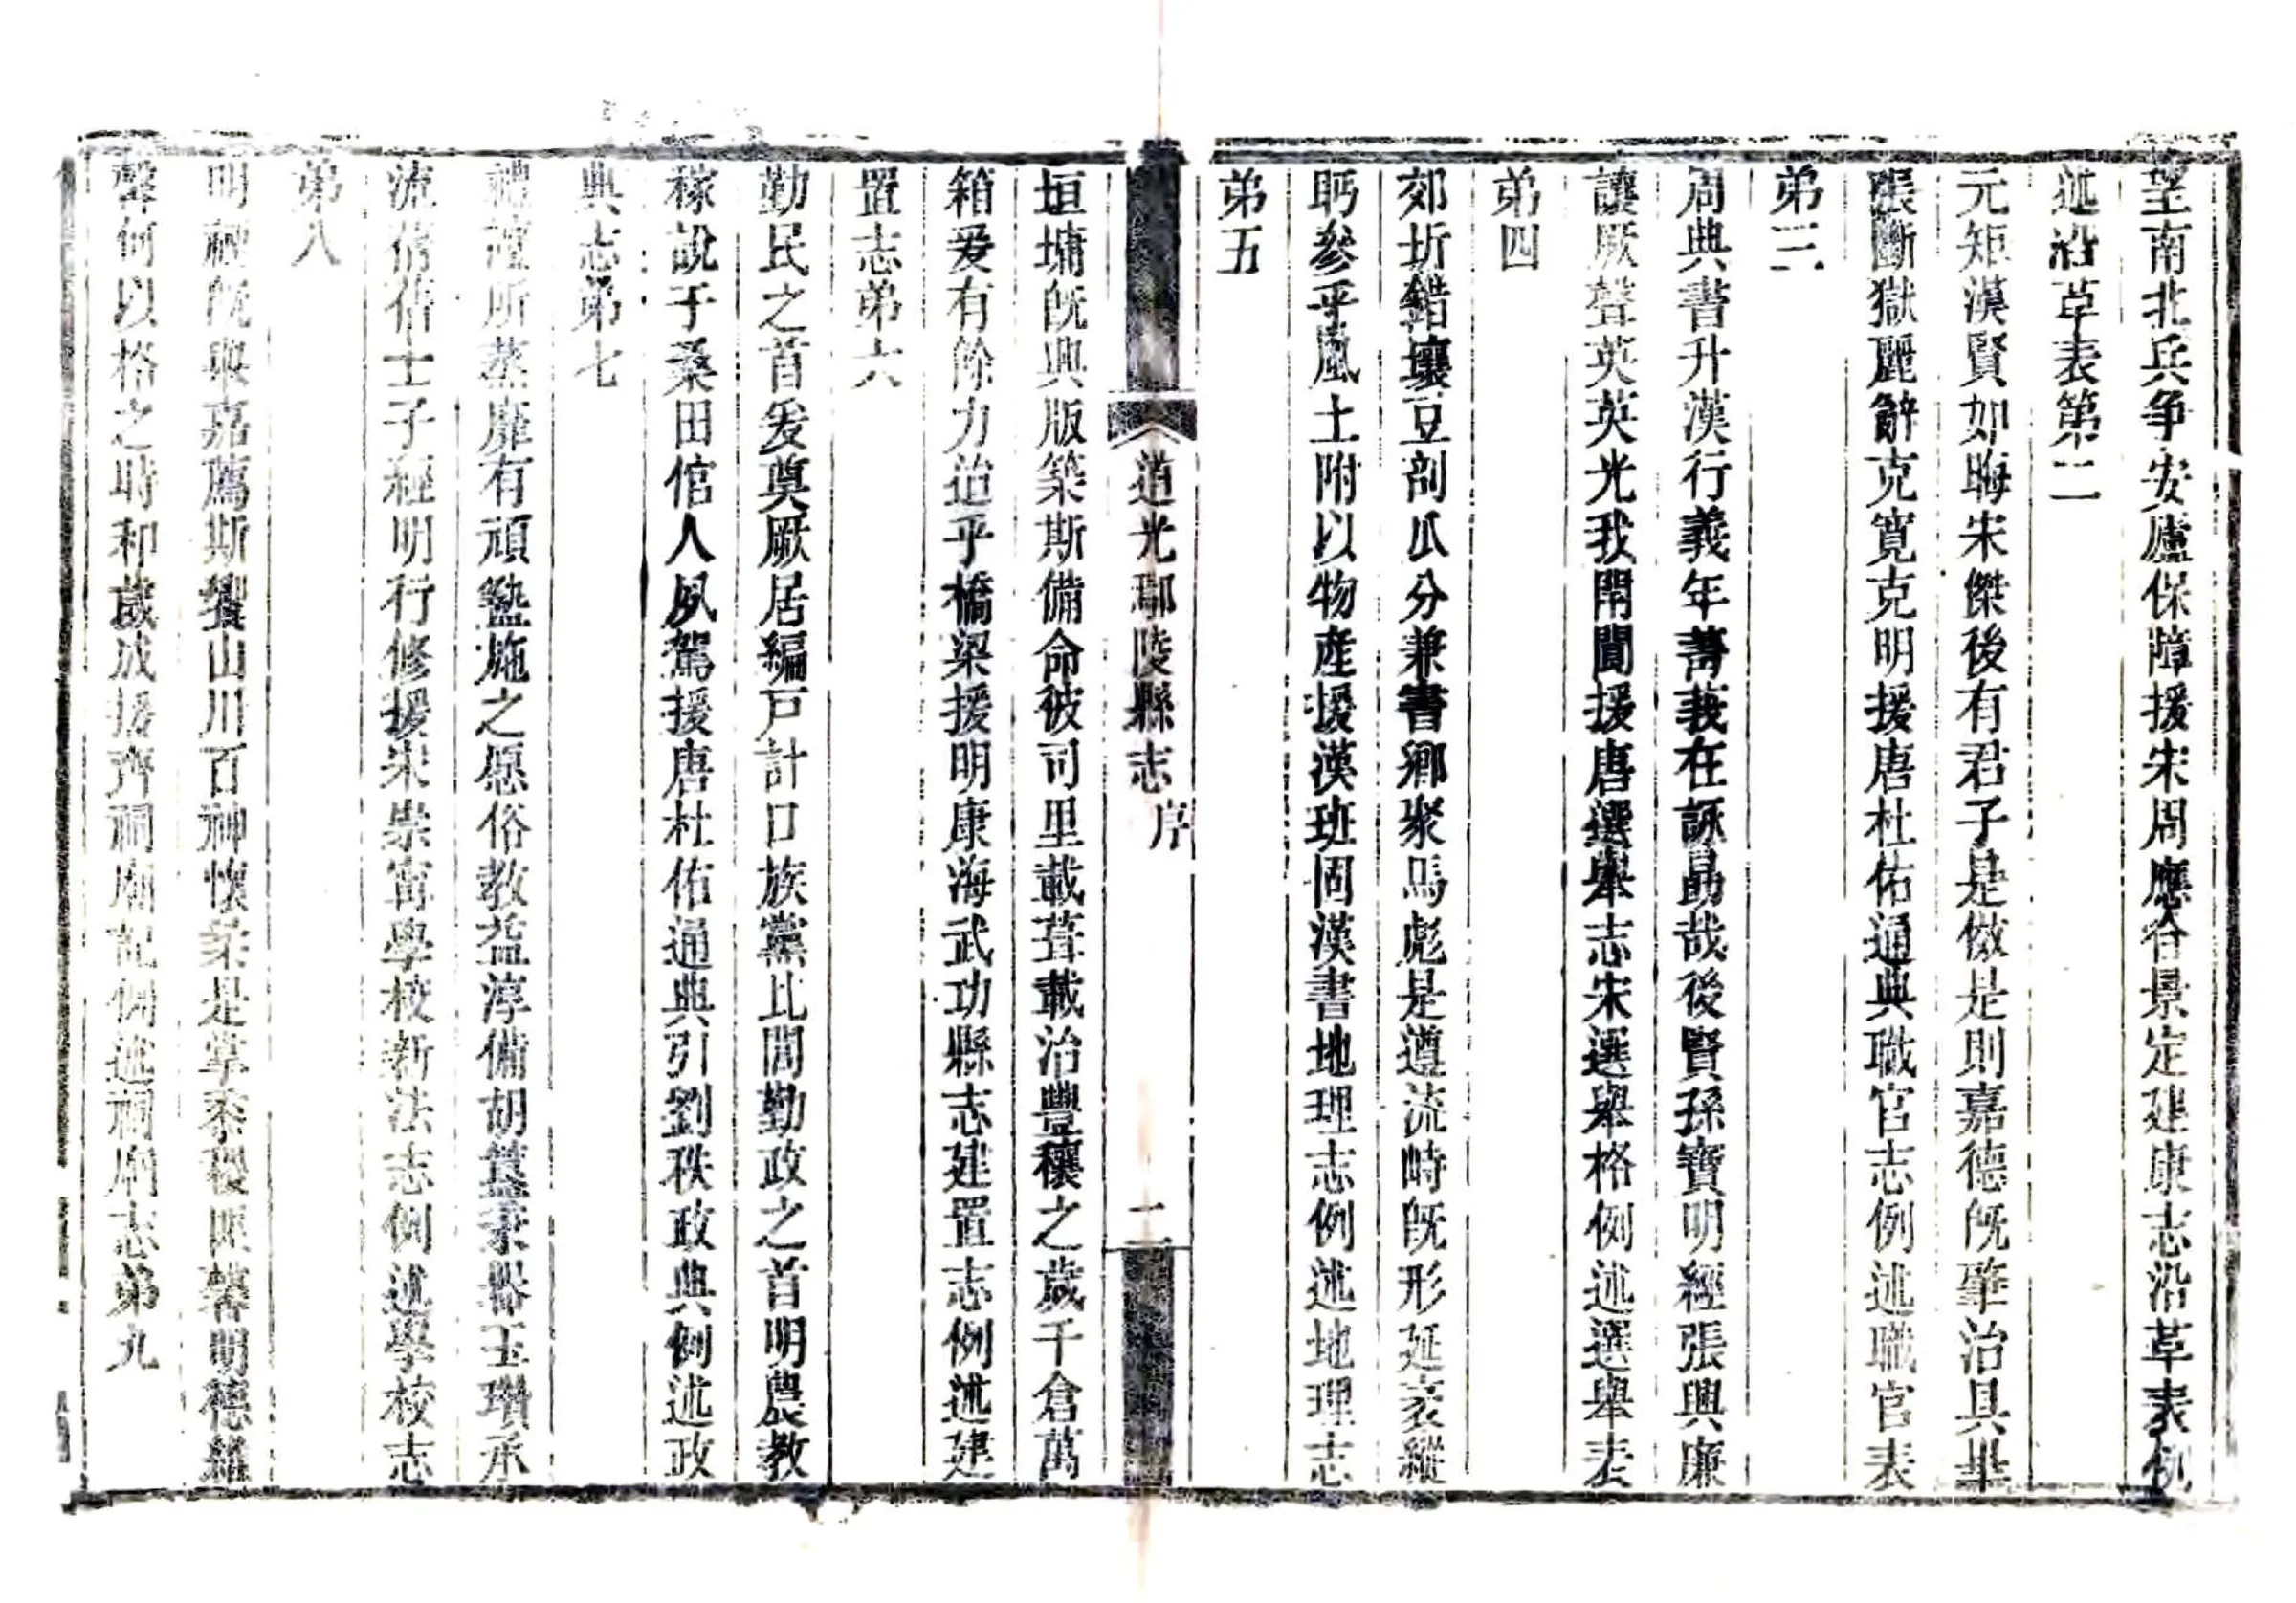 望南北兵争安廬保障援宋周應合景定建康志沿革表例
述沿革表第二
元矩漢賢如晦宋傑後有君子是傚是則嘉德旣肇治具畢
張斷獄麗辭克寬克明援唐杜佑通典職官志例述職官表
弟三
周典書升漢行義年菁莪在詠勗哉後賢孫寶明經張興廉
讓厥聲英英光我閈閎援唐選舉志宋選舉格例述選舉表
弟四
郊圻錯壤豆剖瓜分兼書鄉聚馬彪是遵流峙旣形延袤縱
眄參乎風土附以物産援漢班固漢書地理志例述地理志
弟五
道光鄢陵縣志 序
二
垣墉旣興版築斯備命彼司里載葺載治豐穰之歲千倉萬
箱爰有餘力迨乎橋梁援明康海武功縣志建置志例述建
置志弟六
勤民之首爰奠厥居編戸計口族黨比閭勤政之首明農教
稼說于桑田倌人夙駕援唐杜佑通典引劉秩政典例述政
典志弟七
禮 所蒸靡有頑 施之愿俗教益淳備胡簋 器玉瓚承
流 士子經明行修援宋崇甯學校新法志例述學校志
弟八
明禋旣興嘉薦斯饗山川百神懷柔是掌黍稷匪馨明德維
馨何以格之時和歲成援齊祠廟記例述祠廟志弟九